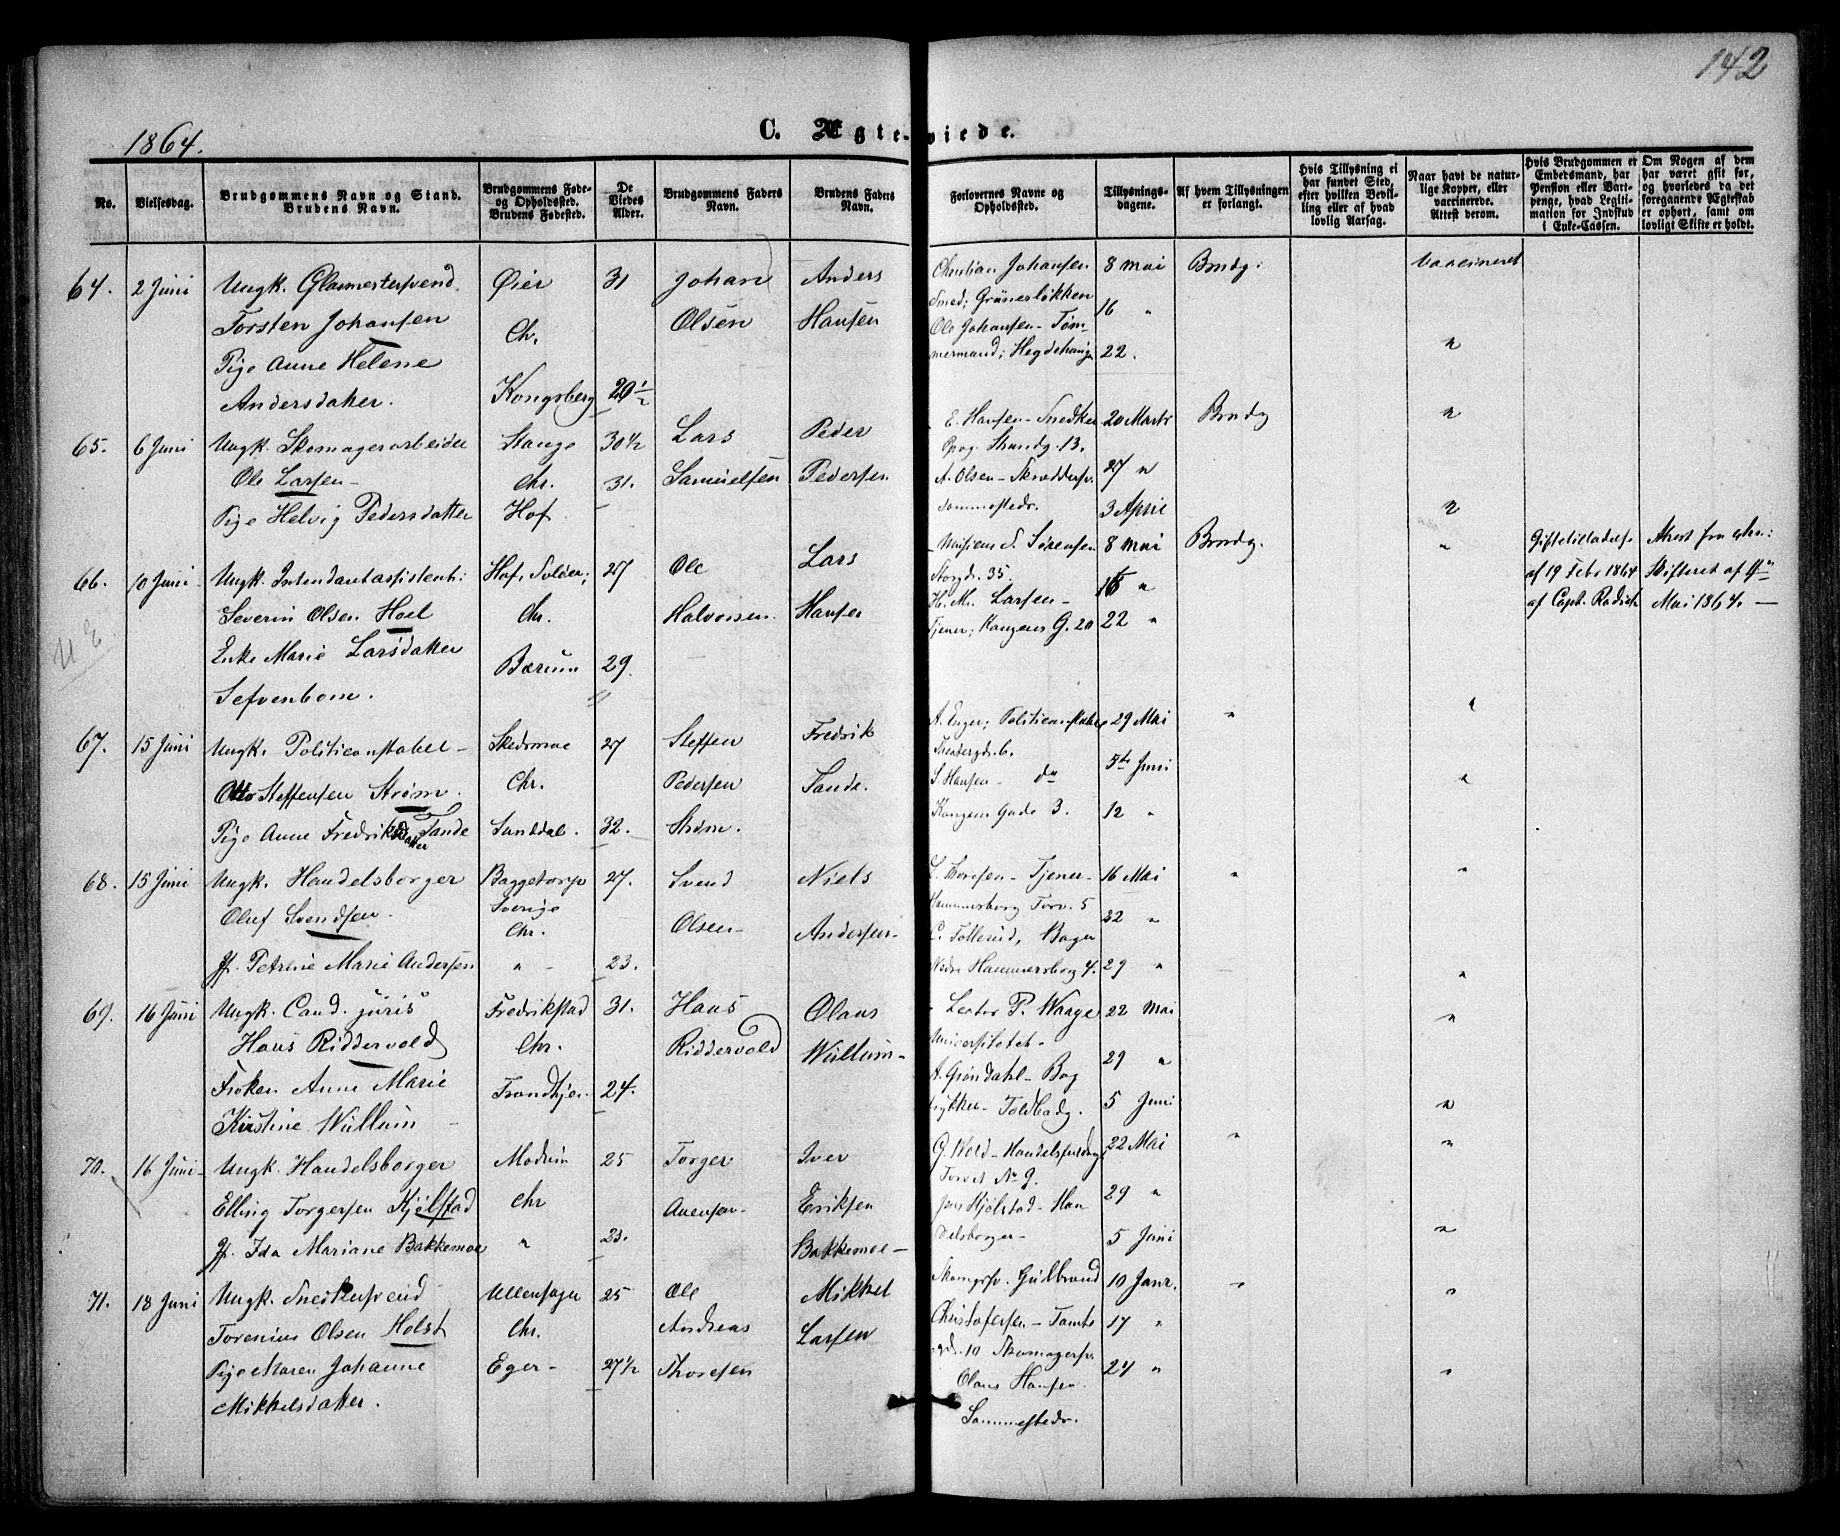 142
1864.
C. Ægteviede.
No.
Vielsesdag.
Brudgommens Navn og Stand.
Brudens Navn.
Brudgommens Føde-
og Opholdssted.
Brudens Fødested.
De
Viedes
Alder.
Brudgommens Faders
Navn.
Brudens Faders
Navn.
Forlovernes Navne og
Opholdssted.
Tillysnings-
dagene.
Af hvem Tillysningen
er forlangt.
Hvis Tillysning ei
har fundet Sted,
efter hvilken Bevil-
ling eller af hvad
lovlig Aarsag.
Naar havt de natur-
lige Kopper, eller
vaccinerede.
Attest derom.
Hvis Brudgommen er
Embedsmand, har
Pension eller Vart-
penge, hvad Legiti-
mation for Indskud
i Enke-Cassen.
Om Nogen af dem
har været gift før,
og hvorledes da det
foregaaende Ægteskab
er ophørt, samt om
lovligt Skifte er holdt.
64. 2 Juni
Ungk. Glasmestersvend
Torsten Johansen
Pige Anne Helene
Andersdatter.
Øier
Chr.
Kongsberg
31
Johan
Olsen
Anders
Hansen
Christian Johansen
Smed; Grünerløkken
Ole Johansen - Tøm
mermand; Hegdehaugen
8 Mai
16 "
22.
Brudg:
Vaccineret
"
65. 6 Juni
Ungk. Skomagerarbeider
Ole Larsen -
Pige Helvig Pedersdatter
Stange
Chr.
Hof.
30 1/2
31.
Lars
Samuelsen
Peder
Pedersen
E. Hansen - Snedker
Strandg. 13.
A. Olsen - Skræddersv.
Sammesteds.
20 Marts
27 "
3 April
Brudg
"
"
66. 10 Juni
Ungk. Intendantassistent:
Severin Olsen Hoel
Enke Marie Larsdatter
Sefvenbom.
Hof, Soløer;
Chr.
Bærum
27
29.
Ole
Halvorsen
Lars
Hansen
Sørensen
Storgd. 35.
H. M. Larsen -
Tjener; Kongens G. 20
8 Mai
16 "
22 "
Brudg.
"
Giftetilladelse
af 19 Febr 1864
af Capt. Radich
Attest fra Chr:
Skifteret af
Mai 1864. -
67. 15 Juni
Ungk. Politiconstabel -
Otto Steffensen Strøm
Pige Anne Fredriksdatter Sande
Skedsmoe
Chr.
Sunddal.
27
32.
Steffen
Pedersen
Strøm.
Fredrik
Sande.
A. Enger; Politiconstabel
S. Hansen - do
Kongens Gade 3.
29 Mai
5te Juni
12 "
"
"
"
68. 15 Juni
Ungk. Handelsborger
Oluf Svendsen.
Jf. Petrine Marie Andersen
Baggetorp
Sverige
Chr.
" -
27.
23.
Svend
Olsen
Niels
Andersen
Tjener
Hammersborg Torv. 5
C. Tollerud, Bager
Nedre Hammersborg 4.
16 Mai
22 "
29 "
"
"
"
69. 16 Juni
Ungk. Cand. juris
Hans Riddervold
Frøken Anne Marie
Kirstine Wullum -
Fredrikstad
Chr.
Trondhjem
31.
24.
Hans
Riddervold
Olaus
Wullum
- Lector P. Waage
Universitetet -
A. Grøndahl - Bog
trykker - Toldbodg.
22 Mai
29 "
5 Juni
"
"
70. 16 Juni
Ungk. Handelsborger
Elling Torgersen Kjølstad
Jf. Ida Mariane Bakkemoe
Modum
Chr
"
25
23.
Torger
Iver
Eriksen
Bakkemoe
G. Wold - Handelsfuldmg
Torvet No 9.
Kjølstad - Han
delsborger -
22 Mai
29 "
5 Juni
"
"
"
71. 18 Juni
Ungk. Snedkersvend
Torenius Olsen Holst
Pige Maren Johanne
Mikkelsdatter.
Ullensager
Chr.
Eger -
25
27 1/2
Ole
Andreas
Thoresen
Mikkel
Larsen
Skomgrsv. Gudbrand
Christofersen - Tomte
gd. 10 Skomagersv.
Olaus Hansen.
Sammesteds.
10 Janr.
17 "
24 "
"
"
"